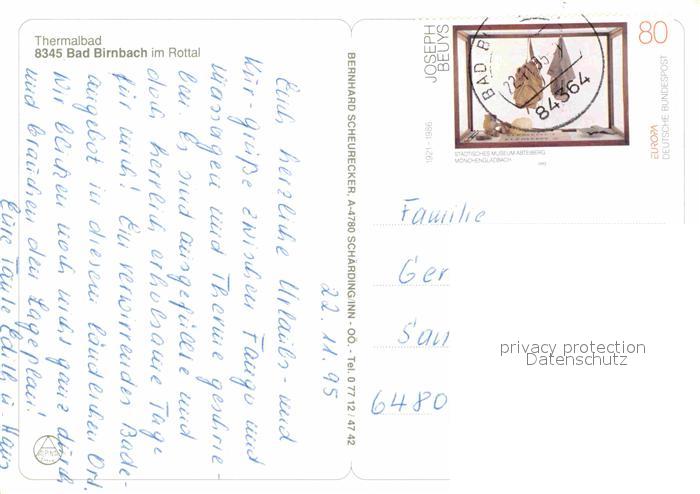 Thermalbad
8345 Bad Birnbach im Rottal
22.11.95
Euch herzliche Urlaubs- und
Kur-grüße zwischen Fango und
Massagen und Therme geschrie-
ben. Es sind ausgefüllte und
doch herrlich erholsame Tage
für mich! Ein verwirrendes Bade-
angebot in diesem ländlichen Ort.
Wir blicken noch nicht ganz durch
und brauchen den Lageplan!
Eure Tante Edith u. Hans
BERNHARD SCHEURECKER, A-4780 SCHÄRDING/INN - OÖ. - Tel. 0 77 12 / 47 42
JOSEPH
BEUYS
1921 - 1986
80
STÄDTISCHES MUSEUM ABTEIBERG
MÖNCHENGLADBACH
EUROPA
DEUTSCHE BUNDESPOST
BAD B
84364
Familie
Ger
San
6480
privacy protection
Datenschutz